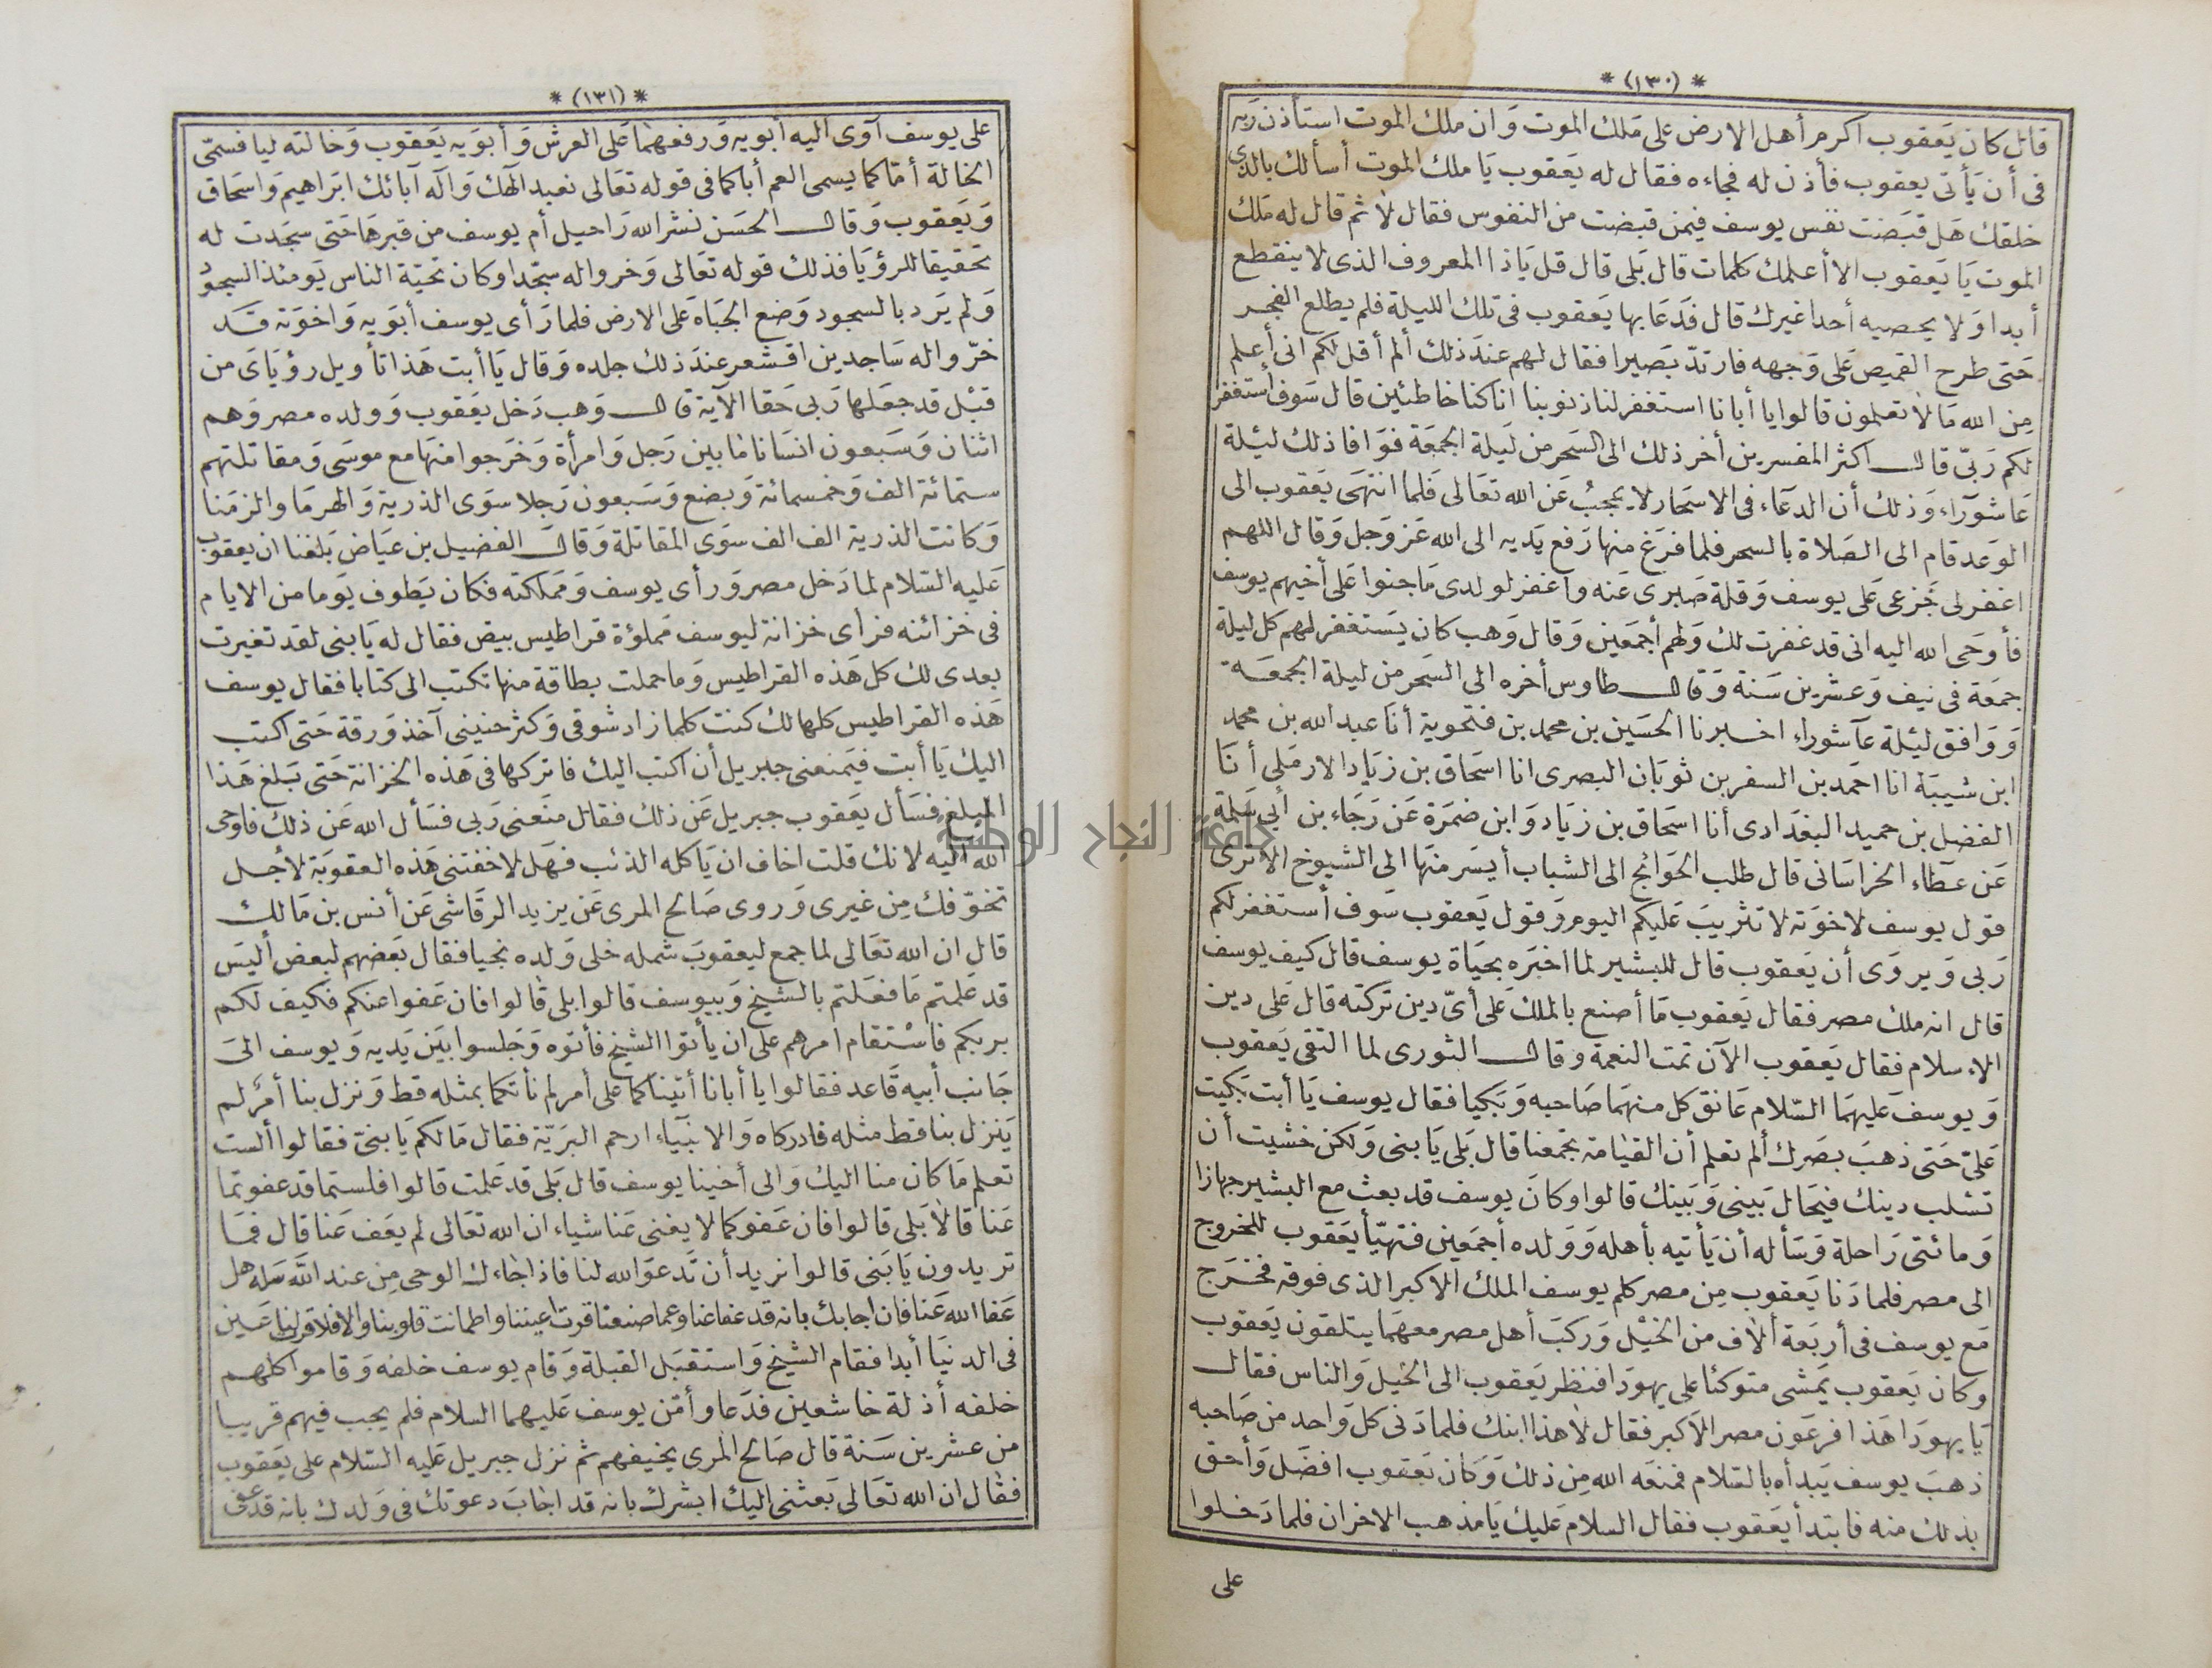 * (١٣٠) *
قال كان يَعقوب اكرم أهل الارض على مَلك الموت وَان ملك الموت استأذن رَبه
فى أن يَأتى يعقوب فأذن له فجاءه فقال له يَعقوب يَا ملك الموت أسألك بالذى
خلقك هَل قبَضت نفس يوسف فيمن قبضت من النفوس فقال لا ثم قال له مَلك
الموت يَا يَعقوب الا أعلمك كلمات قال بَلى قال قل يَاذا المعروف الذى لا ينقطع
أبدا وَلا يحصيه أحدا غيرك قال فدَعَا بها يَعقوب فى تلك الليلة فلم يطلع الفجر
حَتى طرح القميص عَلى وَجهه فارتدّ بَصيرا فقال لهم عندَ ذلك ألم أقل لكم انى أعلم
مِن الله مَا لا تعلمون قالوا يا أبانا استغفر لنا ذنوبنا انا كنا خاطئين قال سَوف أستغفر
لكم رَبّى قال اكثر المفسرين أخر ذلك الى السَحر من لَيلة الجمعَة فوَافا ذلك ليْلة
عَاشورَآء وَذلك أن الدعَاء فى الاسحَار لا يحجبُ عَن الله تعَالى فَلما انتهَى يَعقوب الى
الوَعد قام الى الصَلاة بالسحر فلما فرَغ منها رَفع يَديه الى الله عَز وَجل وَقال اللهم
اغفرلى جَزعى عَلى يوسف وَقلة صَبرى عَنه وَاغفر لولدى مَا جنوا عَلى أخيهم يوسف
فأوحَى الله اليه انى قد غفرت لك وَلهم أجمَعين وَقال وَهب كان يَستغفر لهم كل ليلة
جمعَة فى نيف وَعشرين سَنة وَقال طاوس أخره الى السَحر من ليلة الجمعَة
وَوَافق ليْلة عآشوراء اخبرنا الحسَين بن محمد بن فنحوية أنا عبد الله بن محمد
ابن شيبَة انا احمَد بن السفر بن ثوبَان البصرى انا اسحَاق بن زيَاد الارمَلى أنَا
الفضل بن حميد البغدَادى أنا اسحَاق بن زيَاد وَابن ضمَرَة عَن رَجَاء بن أبى سَلمة
عَن عَطاء الخرَاسَانى قال طلب الحَوَائج الى الشباب أيسَر منهَا الى الشيوخ الا ترى
قول يوسف لاخوَته لا تثريبَ عَليكم اليوم وَقول يَعقوب سَوف أستغفر لكم
رَبى وَيروَى أن يَعقوب قال للبشير لما اخبَره بحيَاة يوسف قال كيف يوسف
قال انه ملك مصر فقال يَعقوب مَا أصنع بالملك عَلى أىّ دين تركته قال عَلى دين
الاسلام فقال يَعقوب الآن تمت النعمة وقال الثورى لما التقى يَعقوب
وَيوسف عَليهمَا السّلام عَانق كل منهمَا صَاحبه وَبَكيا فقال يوسف يَا أبت بَكيت
عَلىّ حَتى ذهبَ بصَرك ألم تعلم أن القيامَة تجمعنا قال بَلى يَا بنى وَلكن خشيت أن
تسلب دينك فيحَال بَينى وَبَينك قالوا وكانَ يوسف قد بعث مع البشير جهازا
وَمائتى رَاحلة وَسَأله أن يَأتيه بأهله وَوَلده أجمَعين فتهيّأ يَعقوب للخروج
الى مصر فلما دَنا يَعقوب مِن مصر كلم يوسف الملك الاكبر الذى فوقه فخرَج
مَع يوسف فى أربَعة ألاف من الخيْل وَركبَ أهل مصر معهمَا يتلقون يَعقوب
وكان يَعقوب يَمشى متوكئا على يهودَا فنظر يَعقوب الى الخيل وَالناس فقال
يَا يهودَا هَذا فرعَون مصر الاكبر فقال لا هذا ابنك فلما دَنى كل وَاحد من صَاحبه
ذهبَ يوسف يَبدأه بالسّلام فمنعَه الله مِن ذلك وَكان يَعقوب افضَل وَأحق
بذلك منه فابتدأ يَعقوب فقال السلام عَليك يَا مذهب الاخران فلما دَخلوا
على
* (١٣١) *
على يوسف آوى اليه أبويه وَرفعهمَا عَلى العرش وَأبوَيه يَعقوب وَخالته ليا فسمّى
الخالة أمّا كما يسمى العم أبا كما فى قوله تعَالى نعبد الَهك وَآله آبائك ابرَاهيم وَاسحَاق
وَيَعقوب وَقال الحسَن نشر الله رَاحيل أم يوسف من قبرهَا حَتى سجَدت له
تحقيقا للرؤيَا فذلك قوله تعَالى وَخروا له سجّدا وكان تحيّة الناس يَومئذ السجوُد
وَلم يَرد بالسجود وَضع الجبَاه عَلى الارض فلما رَأى يوسف أبوَيه وَاخوَته قَد
خرّوا له سَاجدين اقشعر عندَ ذلك جلده وَقال يَا أبت هَذا تأويل رؤيَاىَ من
قبْل قد جعَلها رَبى حَقا الآية قال وَهب دَخل يَعقوب وَولده مصر وَهم
اثنان وَسَبعون انسَانا مَا بين رَجل وَامرأة وَخَرجوا منهَا مع موسَى وَمقاتلتهم
ستمائة الف وَخمسمائة وَبضع وَسَبعون رَجلا سوَى الذرية وَالهرمَا والزمَنا
وَكانت الذرية الف الف سوَى المقاتلة وَقال الفضيل بن عيَاض بَلغنا ان يعقوب
عَليه السّلام لما دَخل مصر وَرأى يوسف وَمَملكته فكان يَطوف يَوما من الايام
فى خزائنه فرأى خزانة ليوسف مَملؤة قراطيس بيض فقال له يَا بنى لقد تغيرت
بعدى لك كل هَذه القراطيس وَما حملت بطاقة منها تكتب الى كتابا فقال يوسف
هَذه القراطيس كلها لك كنت كلما زاد شوقى وَكثر حنينى آخذ وَرقة حَتى اكتب
اليك يَا أبت فيَمنعنى جبريل أن اكتب اليك فاتركها فى هَذه الخزانة حَتى بَلغ هَذا
المبلغ فسَأل يَعقوب جبريل عَن ذلك فقال منَعنى رَبى فسَأل الله عَن ذلك فاوحى
الله اليه لانك قلت اخاف ان يَاكله الذئب فهَل لا خفتنى هَذه العقوبَة لأجل
تخوّفك مِن غيرى وَروى صَالح المرى عَن يزيد الرقاشى عَن أنس بن مَالك
قال ان الله تعَالى لما جمع ليعقوبَ شمله خلى وَلده نجيا فقال بَعضهم لبعض أليسَ
قد عَلمتم مَا فعَلتم بالشيخ وَبيوسف قالوا بلى قالوا فان عَفوا عنكم فكيف لكم
بربكم فاسْتقام امرهم على ان يأتوا الشيخ فأتوَه وَجَلسوا بَيَن يَديه وَيوسف الىَ
جَانب أبيه قَاعد فقالوا يا أبانا أتينا كما على أمر لم نأتكما بمثله قط وَنزل بنا أمرٌ لم
يَنزل بنا قط مثله فادركاه وَالانبيَآء ارحم البرَيّة فقال مَا لكم يَا بنىّ فقالوا ألست
تعلم مَا كان منا اليك وَالى أخينا يوسف قال بَلى قد عَلمت قالوا فلستما قد عفوتما
عَنا قالا بَلى قالوا فان عَفوكما لا يغنى عَنا شياء ان الله تعَالى لم يعَف عَنا قال فمَا
تريدون يَا بَنى قالوا نريد أن تَدعوَ الله لنا فاذا جَاءك الوحى مِن عند اللَّه سَله هل
عَفا الله عَنا فان اجابك بانه قد عفا عنا وعما صنعنا قرت اعيننا واطمانت قلوبنا والا فلا قرت لنا عَين
فى الدنيَا أبدا فقام الشيخ وَاستقبَل القبلة وَقام يوسف خلفه وَقاموا كلهم
خلفه أذلة خاشعين فدَعا وأمّن يوسف عَليهما السلام فلم يجب فيهم قريبا
من عشرين سَنة قال صَالح المرى يخيفهم ثم نزل جبريل عَليه السّلام على يَعقوب
فقال ان الله تعَالى بَعثنى اليك ابشرك بانه قد اجابَ دعوتك فى وَلدك بانه قد عفى
جامعة النجاح الوطنية